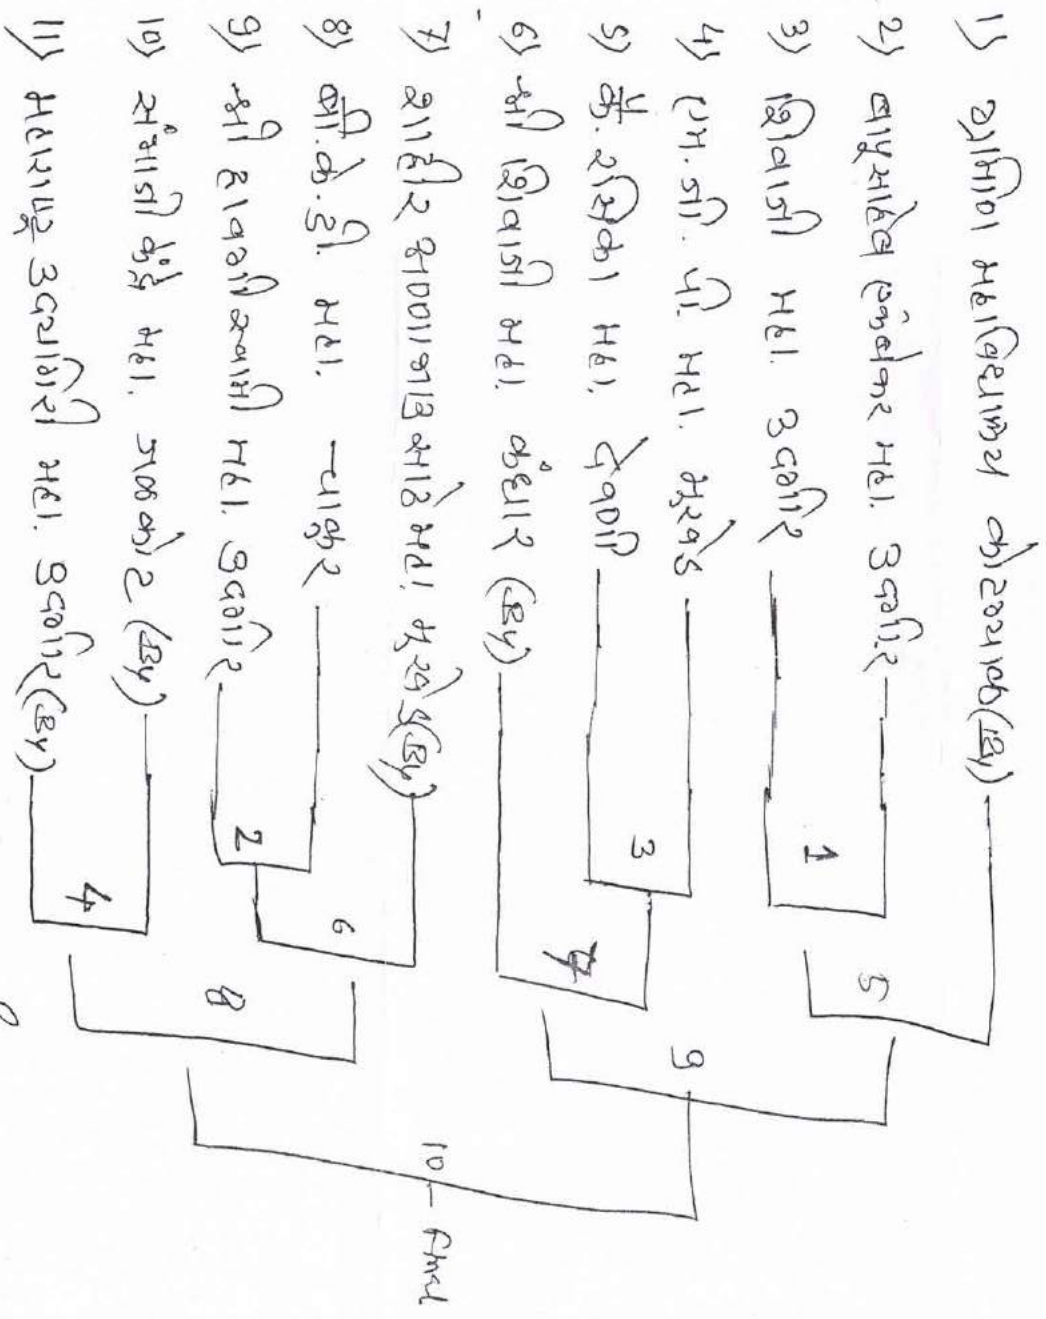 1) ग्रामिण महाविद्यालय कोटग्याळ (By)
2) बापुसाहेब एकंबेकर महा. उदगीर
3) शिवाजी महा. उदगीर
4) एम. जी. पी. महा. मुखेड
5) कै. रसिका महा. देवणी
6) श्री शिवाजी महा. कंधार (By)
7) शाहीर अण्णाभाऊ साठे महा. मुखेड (By)
8) बी. के. डी. महा. चाकूर
9) श्री हावगीस्वामी महा. उदगीर
10) संभाजी केंद्रे महा. जळकोट (By)
11) महाराष्ट्र उदयगिरी महा. उदगीर (By)
1
2
3
4
5
6
7
8
9
10 - Final